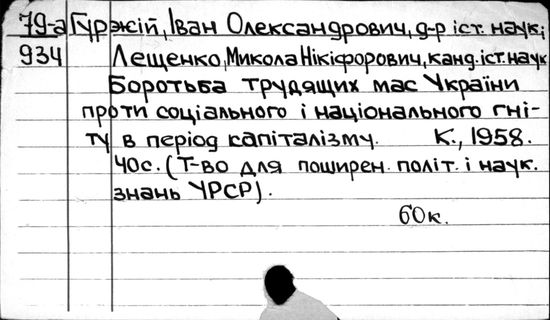 79-а Гуржій, Іван Олександрович, д-р іст. наук;
934 Лещенко, Микола Нікіфорович, канд. іст. наук
Боротьба трудящих мас України
проти соціального і національного гні-
ту в період капіталізму. К., 1958.
40с. (Т-во для поширен. політ. і наук.
знань УРСР).
60к.